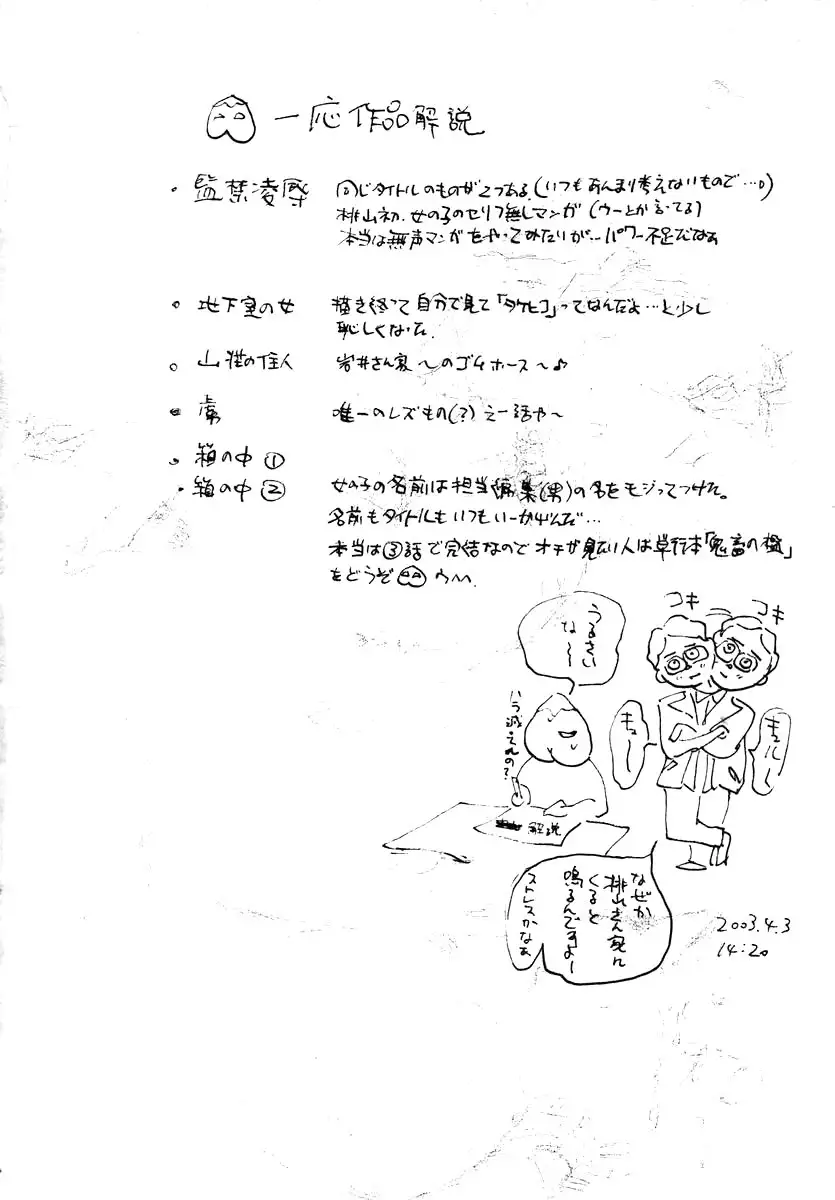 一応作品解説
・監禁凌辱 同じタイトルのものが2つある。(いつもあんまり考えないもので…。)
桃山初、女の子のセリフ無しマンガ(ウーとか言ってる)
本当は無声マンガをやってみたいが…パワー不足だなぁ
・地下室の女 描き終って自分で見て「タケヒコ」ってなんだよ…と少し
恥しくなった。
・山荘の住人 岩井さん家〜のゴムホース〜♪
・虜 唯一のレズもの(?)えー話や〜
・箱の中①
・箱の中② 女の子の名前は担当編集(男)の名をモジってつけた。
名前もタイトルもいつもいーかげんだ…
本当は③話で完結なのでオチが見たい人は単行本「鬼畜の檻」
をどうぞ
コキ
コキ
うるさい
な〜〜
ハラ減ってんの?
キュー
キュルル
解説
なぜか
桃山さん家に
くると
鳴るんですよー
ストレスかなぁ
2003.4.3
14:20